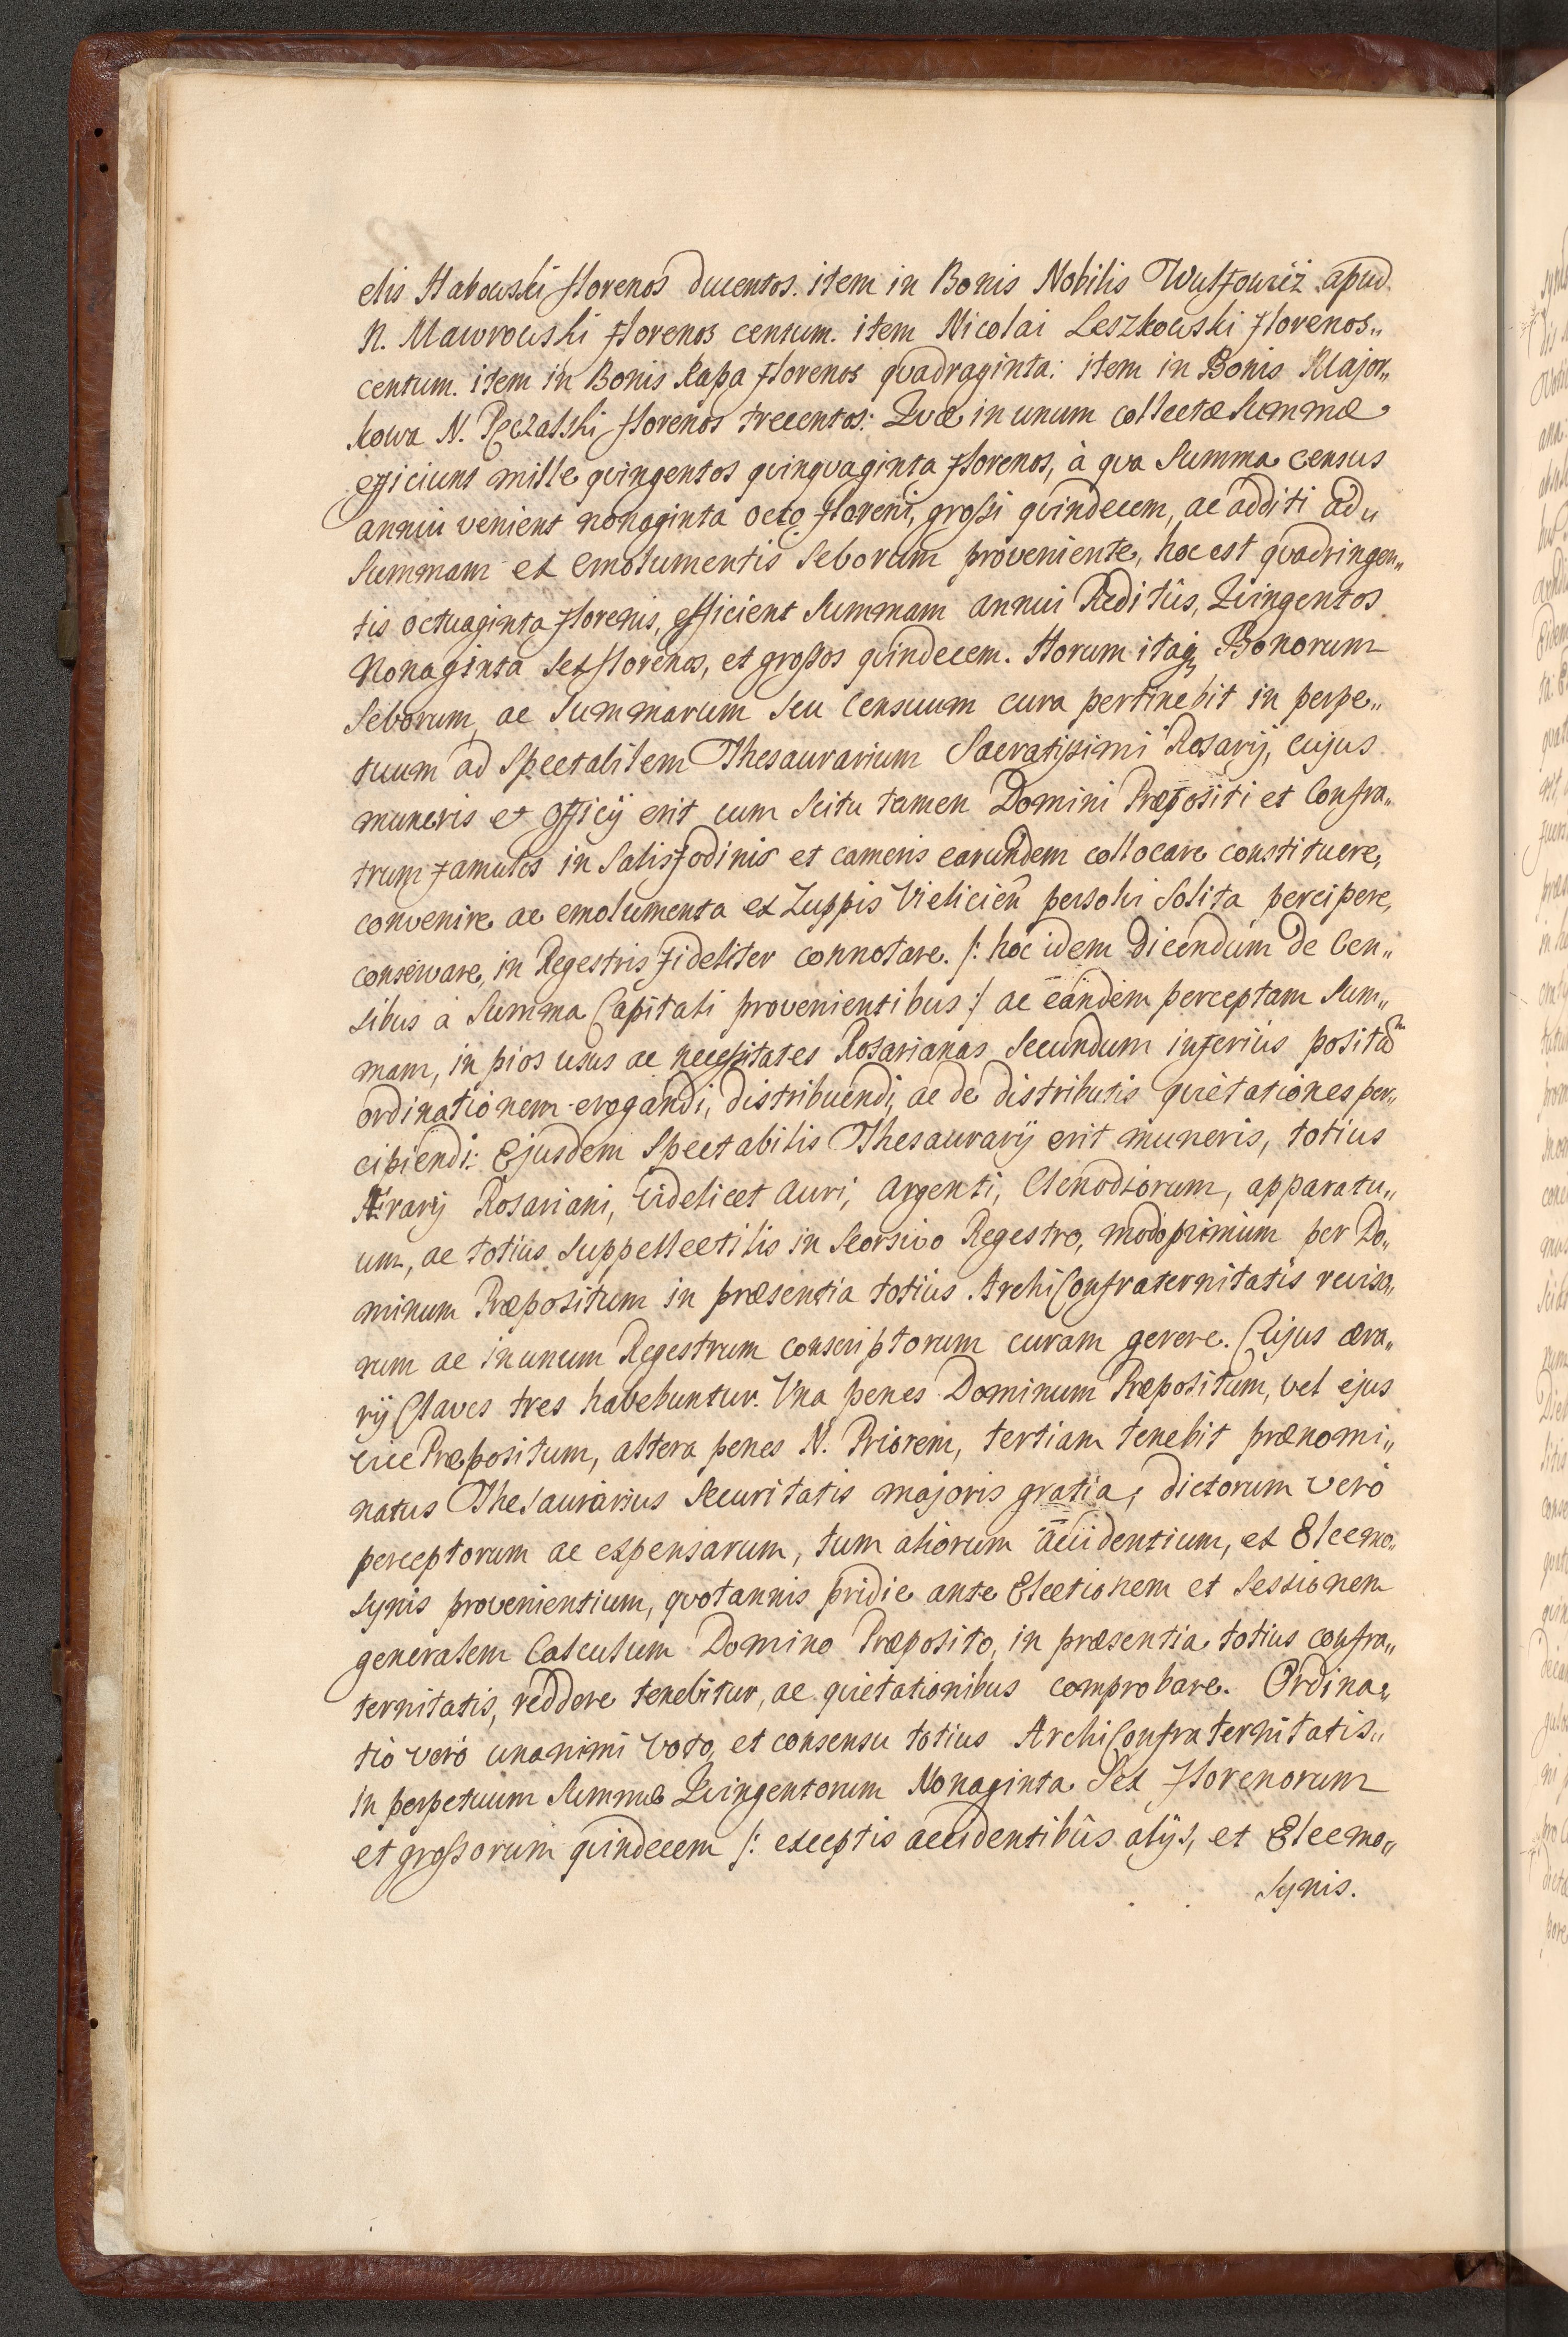 elis Stabowski florenos ducentos. item in Bonis Nobilis Wulfowicz apud
N. Mawrowski florenos centum. item Nicolai Leszkowski florenos„
centum. item in Bonis Rapa florenos qvadraginta: item in Bonis Major„
kowa N. florenos trecentos: Qvæ in unum collectæ summæ
efficiunt mille qvingentos qvinqvaginta florenos, à qva Summa census
annui venient nonaginta octo floreni, grossi qvindecem, ac additi ad„
Summam ex emolumentis Seborum proveniente, hoc est qvadringen„
tis octuaginta florenis, efficient summam annui Reditûs, Qvingentos
Nonaginta sex florenos, et grossos qvindecem. Horum itaq; Bonorum
Seborum, ac Summarum seu Censuum cura pertinebit in perpe„
tuum ad Spectabilem Thesaurarium Sacratissimi Rosarij, cujus
muneris et officij erit cum scitu tamen Domini Præpositi et Confra„
trum famulos in Salisfodinis et cameris earundem collocare constituere,
convenire ac emolumenta ex Zuppis Vielicień persolvi solita percipere,
conservare, in Regestris fideliter connotare. /: hoc idem dicendum de Cen„
sibus à Summa Capitali provenientibus :/ ac eandem perceptam Sum„
mam, in pios usus ac necessitates Rosarianas secundum inferius positam
ordinationem erogandi, distribuendi, ac de distributis qvietationes per„
cipiendi: Ejusdem Spectabilis Thesaurarij erit muneris, totius
Ærarij Rosariani, videlicet Auri, Argenti, Clenodiorum, apparatu„
um, ac totius Suppellectilis in Seorsivo Regestro, modoprimum per Do„
minum Præpositum in præsentia totius ArchiConfraternitatis reviso„
rum ac in unum Regestrum conscriptorum curam gerere. Cujus æra„
rij Claves tres habebuntur. Una penes Dominum Præpositum, vel ejus
vice Præpositum, altera penes N. Priorem, tertiam tenebit prænomi„
natus Thesaurarius securitatis majoris gratia; dictorum verò
perceptorum ac expensarum, tum aliorum accidentium, ex Eleemo„
synis provenientium, qvotannis pridie ante Electionem et Sessionem
generalem Calculum Domino Præposito, in præsentia totius confra„
ternitatis, reddere tenebitur, ac qvietationibus comprobare. Ordina„
tio verò unanimi voto, et consensu totius ArchiConfraternitatis„
in perpetuum summæ Qvingentorum Nonaginta Sex florenorum
et grossorum qvindecem /: exceptis accidentibus alijs, et Eleemo„
synis.